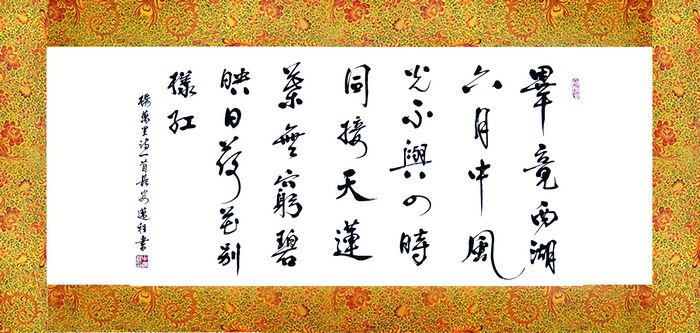 畢竟西湖
六月中風
光不與四時
同接天蓮
葉無窮碧
映日荷花別
樣紅
楊萬里詩一首長安書